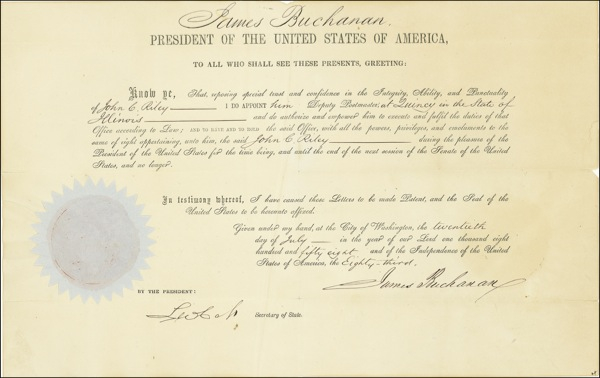 James Buchanan.
PRESIDENT OF THE UNITED STATES OF AMERICA,
TO ALL WHO SHALL SEE THESE PRESENTS, GREETING:
Know ye, That, reposing special trust and confidence in the Integrity, Ability, and Punctuality
of John C. Riley I DO APPOINT him Deputy Postmaster, at Quincy in the State of
Illinois and do authorize and empower him to execute and fulfil the duties of that
Office according to Law; AND TO HAVE AND TO HOLD the said Office, with all the powers, privileges, and emoluments to the
same of right appertaining, unto him, the said John C. Riley during the pleasure of the
President of the United States for the time being, and until the end of the next session of the Senate of the United
States, and no longer.
In testimony whereof, I have caused these Letters to be made Patent, and the Seal of the
United States to be hereunto affixed.
Given under my hand, at the City of Washington, the twentieth
day of July in the year of our Lord one thousand eight
hundred and fifty eight and of the Independence of the United
States of America, the Eighty-third.
James Buchanan
BY THE PRESIDENT:
Secretary of State.